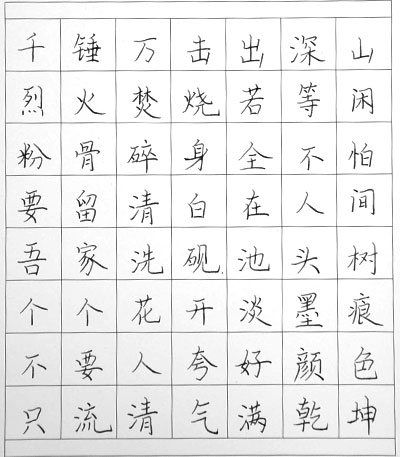 千锤万击出深山
烈火焚烧若等闲
粉骨碎身全不怕
要留清白在人间
吾家洗砚池头树
个个花开淡墨痕
不要人夸好颜色
只流清气满乾坤